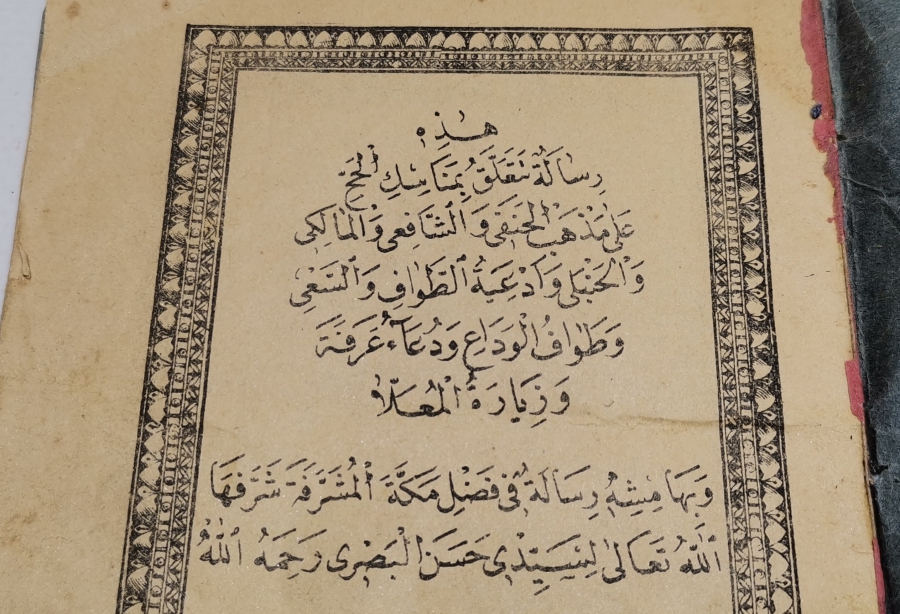 هٰذِهِ
رِسَالَةٌ تَتَعَلَّقُ بِمَنَاسِكِ الْحَجِّ
عَلٰى مَذْهَبِ الْحَنَفِى وَالشَّافِعِى وَالْمَالِكِى
وَالْحَنْبَلِى وَاَدْعِيَةُ الطَّوَافِ وَالسَّعْىِ
وَطَوَافُ الْوَدَاعِ وَدُعَآءُ عَرَفَةَ
وَزِيَارَةُ الْمُعَلَّا
وَبِهَامِشِهِ رِسَالَةٌ فِى فَضْلِ مَكَّةَ الْمُشَرَّفَةَ شَرَّفَهَا
اَللّٰهُ تَعَالٰى لِسَيِّدِى حَسَنَ الْبَصْرِى رَحِمَهُ اللّٰهُ